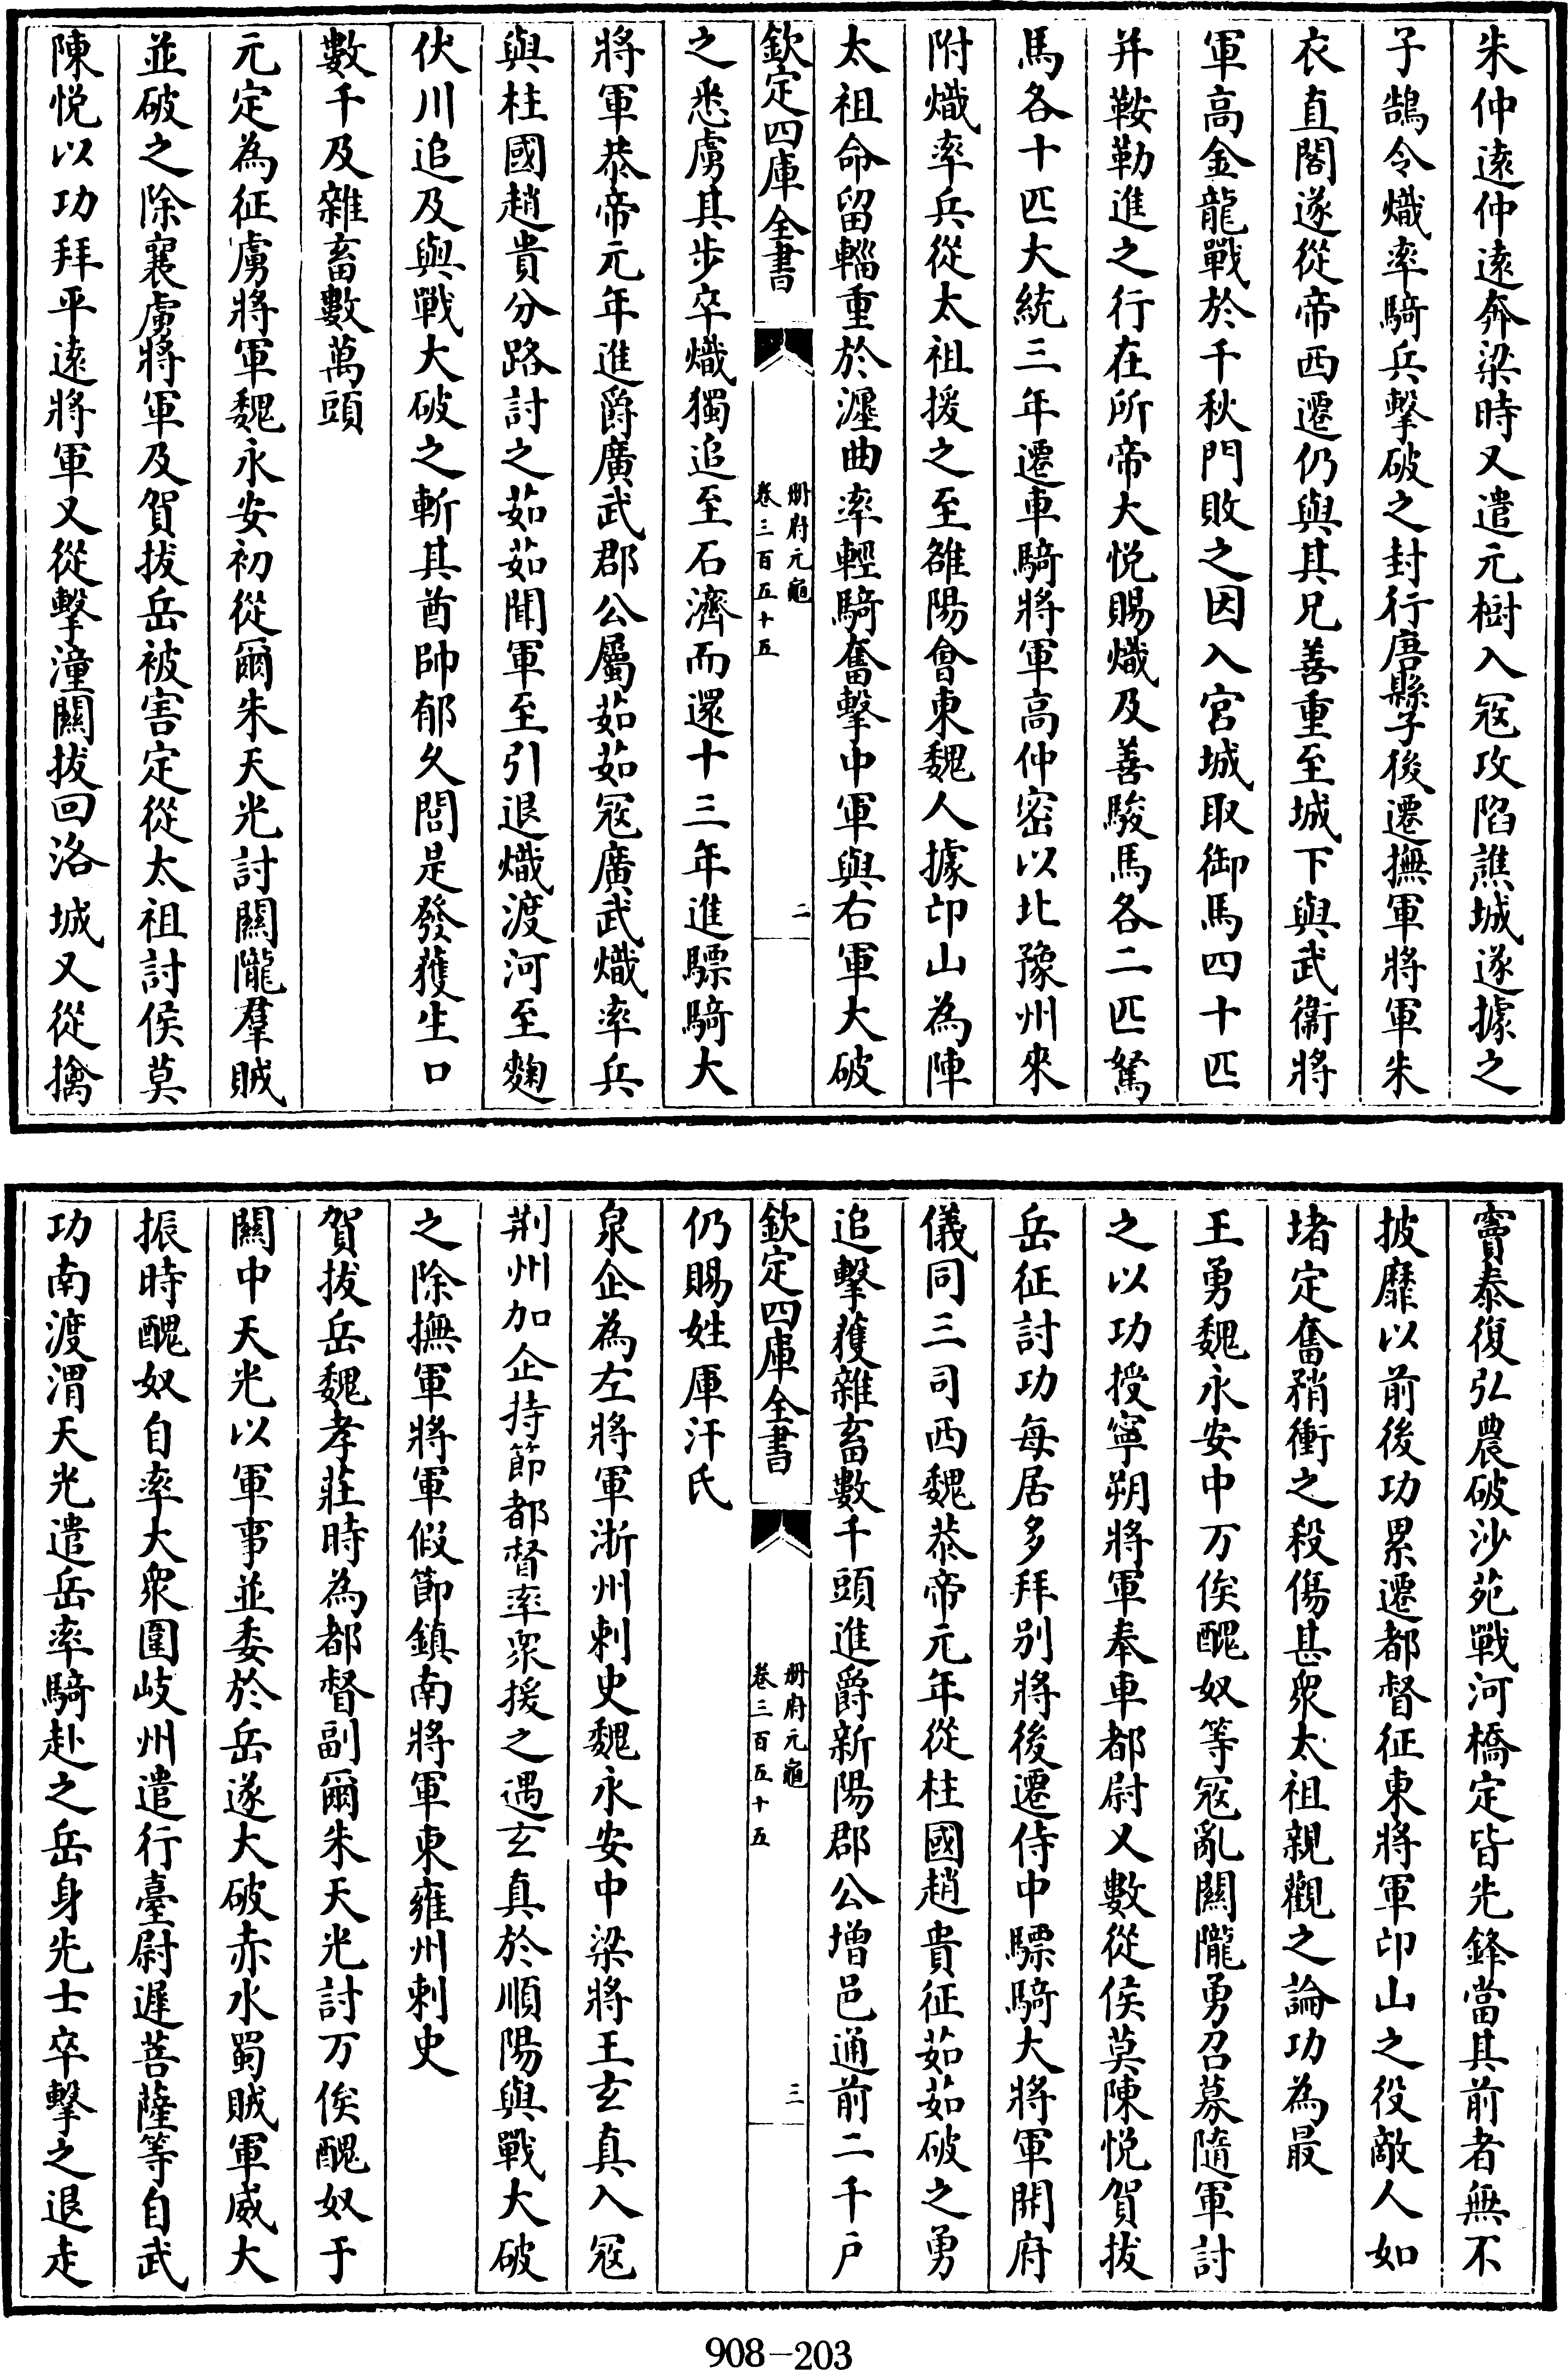 朱仲遠仲遠奔梁時又遣元樹入冦攻陷譙城遂據之
子鵠令熾率騎兵擊破之封行唐縣子後遷撫軍將軍朱
衣直閤遂從帝西遷仍與其兄善重至城下與武衞將
軍高金龍戰於千秋門敗之因入宮城取御馬四十匹
并鞍勒進之行在所帝大悅賜熾及善駿馬各二匹駑
馬各十匹大統三年遷車騎將軍高仲密以北豫州來
附熾率兵從太祖援之至雒陽會東魏人據卬山為陣
太祖命留輜重於瀍曲率輕騎奮擊中軍與右軍大破
欽定四庫全書
册府元龜
卷三百五十五
二
之悉虜其步卒熾獨追至石濟而還十三年進驃騎大
將軍恭帝元年進爵廣武郡公屬茹茹冦廣武熾率兵
與柱國趙貴分路討之茹茹聞軍至引退熾渡河至麴
伏川追及與戰大破之斬其酋帥郁久閭是發獲生口
數千及雜畜數萬頭
元定為征虜將軍魏永安初從爾朱天光討關隴羣賊
並破之除襄虜將軍及賀拔岳被害定從太祖討侯莫
陳悅以功拜平遠將軍又從擊潼關拔回洛城又從擒
竇泰復弘農破沙苑戰河橋定皆先鋒當其前者無不
披靡以前後功累遷都督征東將軍卬山之役敵人如
堵定奮矟衝之殺傷甚衆太祖親觀之論功為最
王勇魏永安中万俟醜奴等冦亂關隴勇召募隨軍討
之以功授寧朔將軍奉車都尉又數從侯莫陳悅賀拔
岳征討功每居多拜別將後遷侍中驃騎大將軍開府
儀同三司西魏恭帝元年從柱國趙貴征茹茹破之勇
追擊獲雜畜數千頭進爵新陽郡公增邑通前二千戶
欽定四庫全書
册府元龜
卷三百五十五
三
仍賜姓厙汗氏
泉企為左將軍淅州刺史魏永安中梁將王玄真入冦
荆州加企持節都督率衆援之遇玄真於順陽與戰大破
之除撫軍將軍假節鎮南將軍東雍州刺史
賀拔岳魏孝莊時為都督副爾朱天光討万俟醜奴于
關中天光以軍事並委於岳遂大破赤水蜀賊軍威大
振時醜奴自率大衆圍岐州遣行臺尉遲菩薩等自武
功南渡渭天光遣岳率騎赴之岳身先士卒擊之退走
908-203